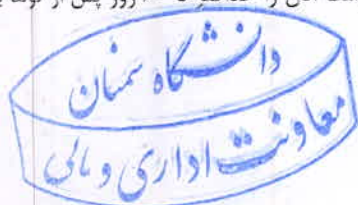 روز پس از
دانشگاه سمنان
معاونت اداری و مالی